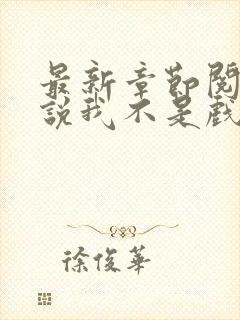 最新章節閱
說我不是戲
徐俊華